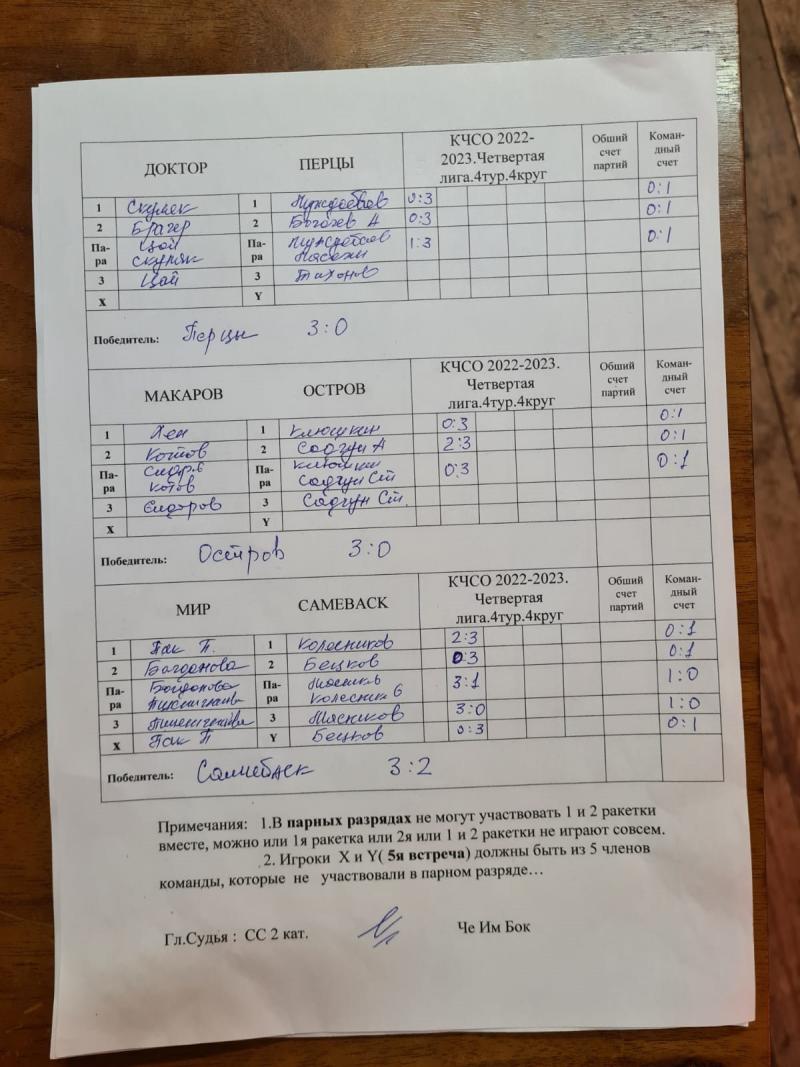 ДОКТОР ПЕРЦЫ КЧСО 2022-2023.Четвертая лига.4тур.4круг Обший счет партий Коман-дный счет
1 Скумяк 1 0:3 0:1
2 Брагер 2 А 0:3 0:1
Па-ра Цой Па-ра 1:3 0:1
Скумяк
3 Цой 3 Тихонов
X Y
Победитель: Перцы 3:0
МАКАРОВ ОСТРОВ КЧСО 2022-2023. Четвертая лига.4тур.4круг Обший счет партий Коман-дный счет
1 Хен 1 Клюшкин 0:3 0:1
2 Котов 2 Садгун А 2:3 0:1
Па-ра Па-ра 0:3 0:1
Котов Садгун Ст
3 Сидоров 3 Садгун Ст.
X Y
Победитель: Остров 3:0
МИР САМЕВАСК КЧСО 2022-2023. Четвертая лига.4тур.4круг Обший счет партий Коман-дный счет
1 Пак П. 1 Колесников 2:3 0:1
2 Богданова 2 Бецков 0:3 0:1
Па-ра Богданова Па-ра 3:1 1:0
3 3 Мясников 3:0 1:0
X Пак П Y Бецков 0:3 0:1
Победитель: 3:2
Примечания: 1.В парных разрядах не могут участвовать 1 и 2 ракетки
вместе, можно или 1я ракетка или 2я или 1 и 2 ракетки не играют совсем.
2. Игроки X и Y( 5я встреча) должны быть из 5 членов
команды, которые не участвовали в парном разряде…
Гл.Судья : СС 2 кат. Че Им Бок